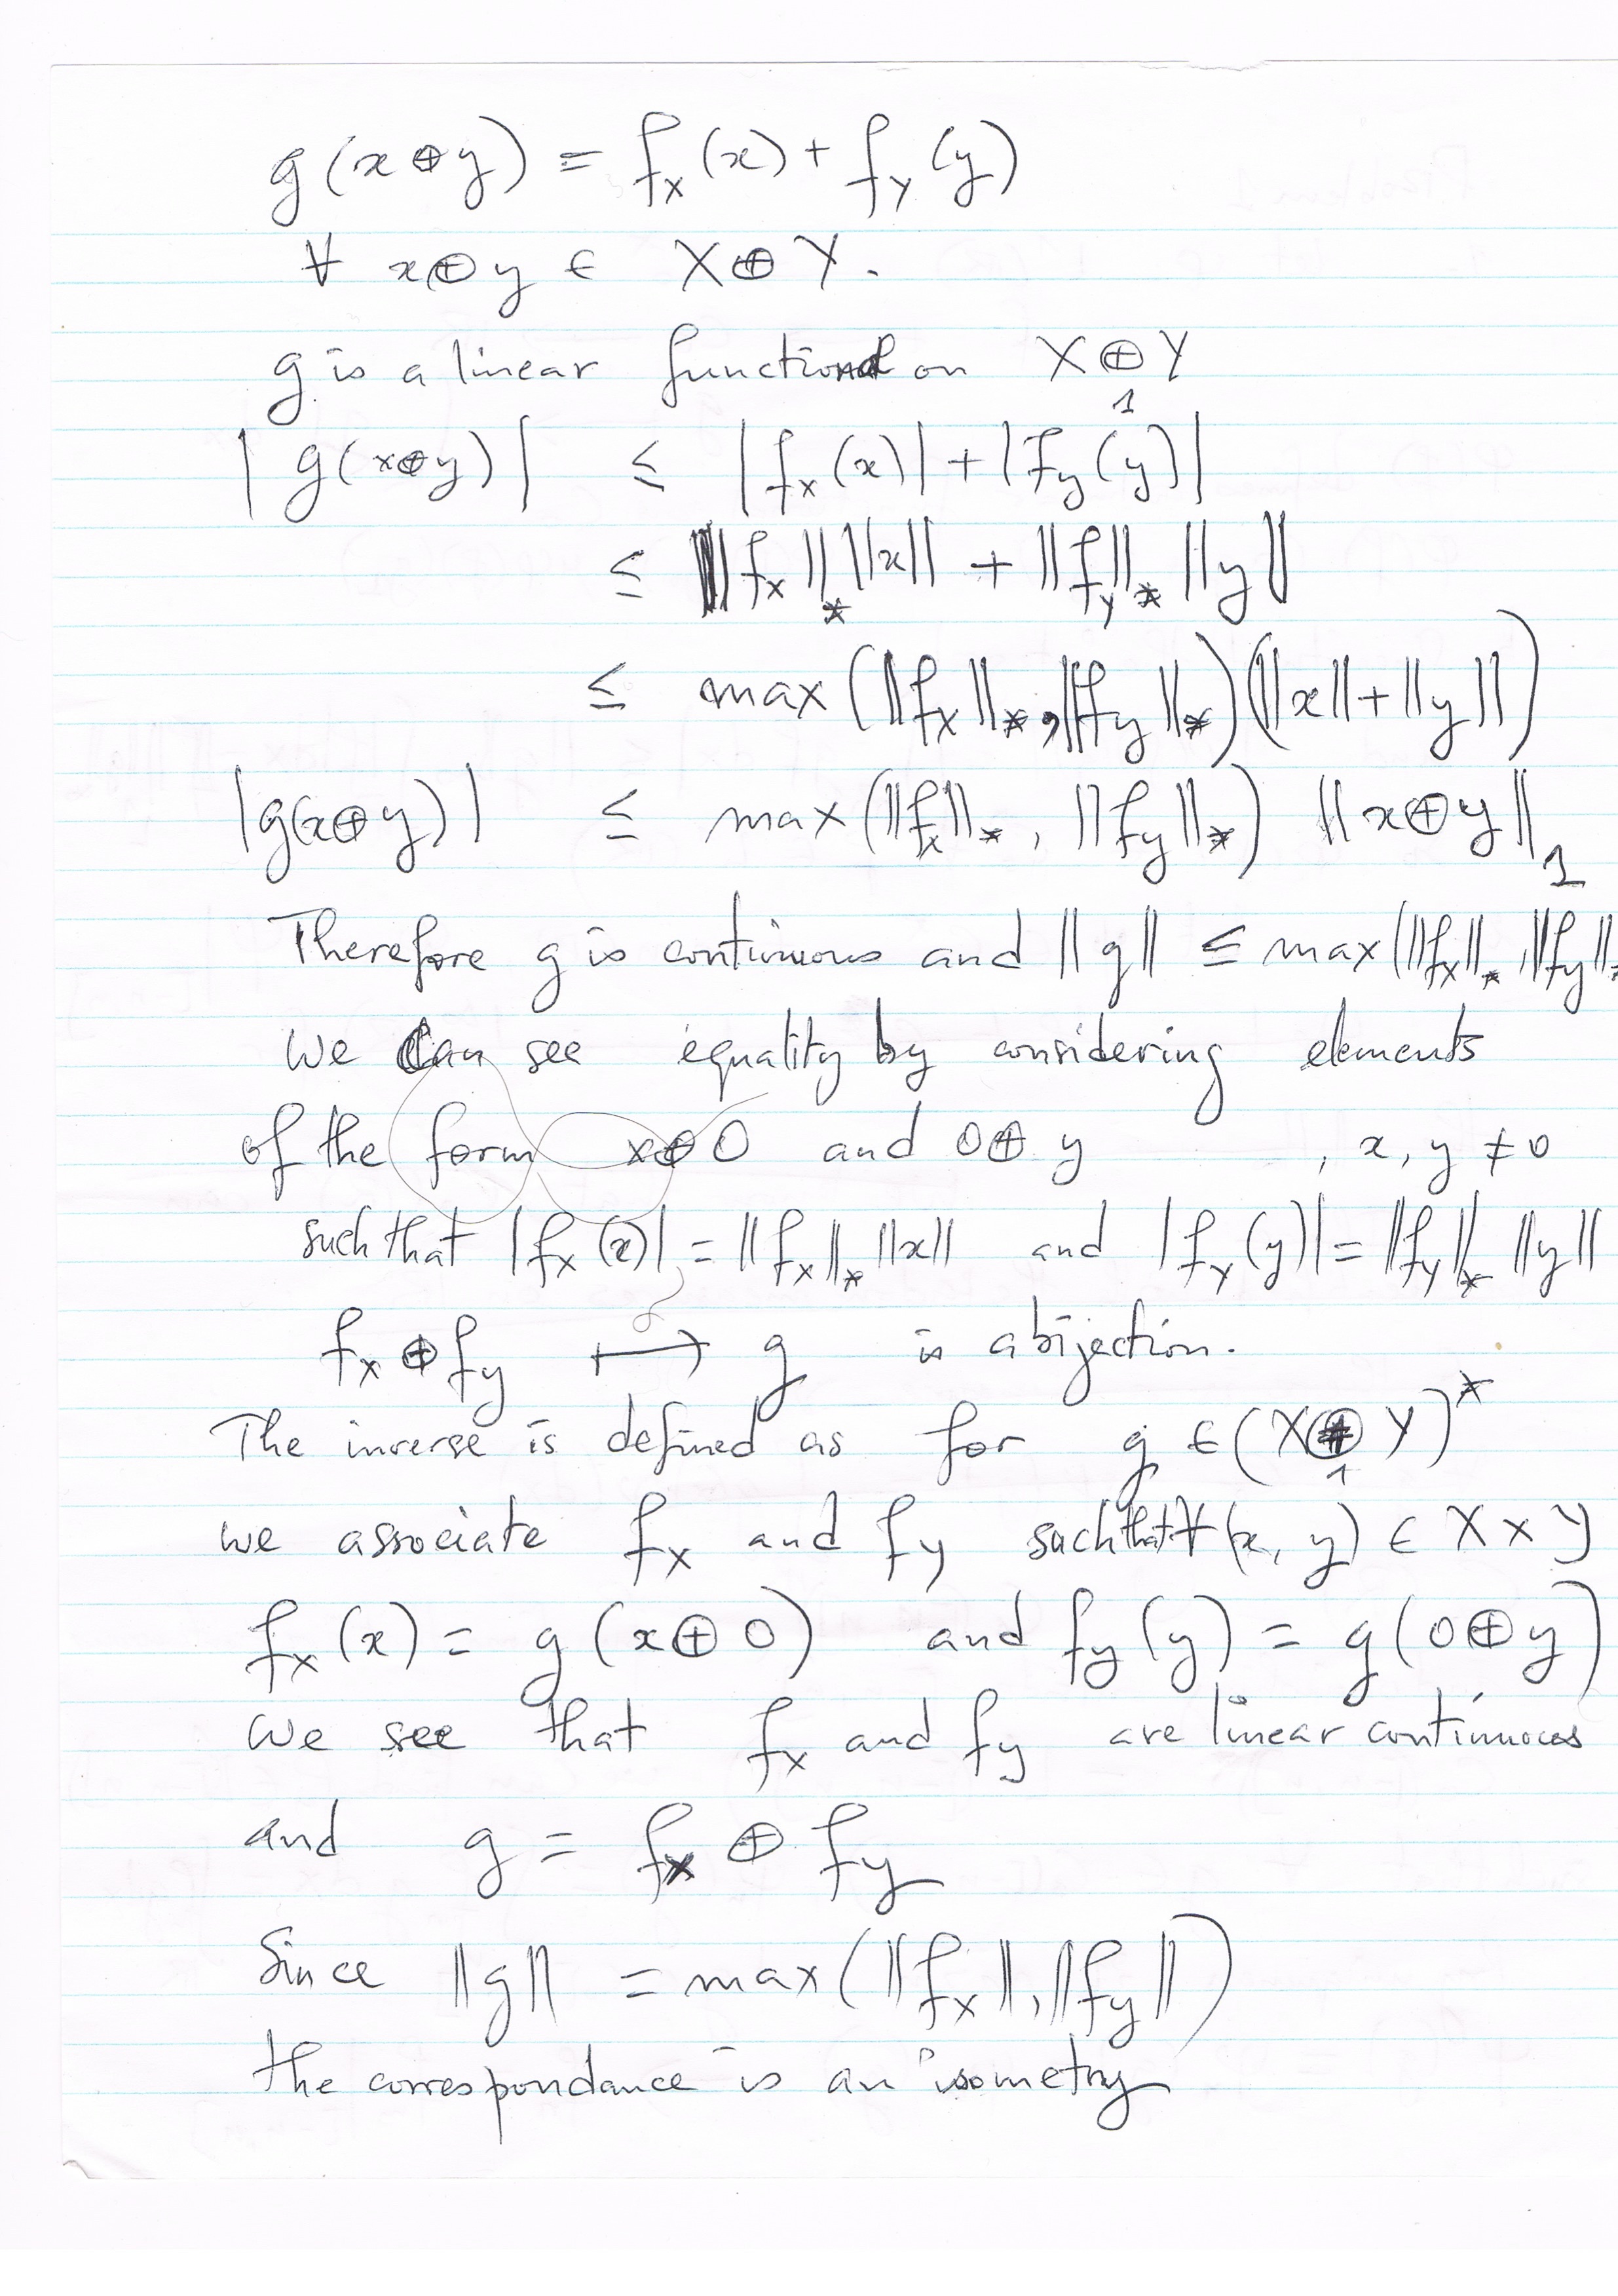 g(x⊕y) = f_X(x) + f_Y(y)
∀ x⊕y ∈ X⊕Y.
g is a linear functional on X⊕₁Y
|g(x⊕y)| ≤ |f_X(x)| + |f_Y(y)|
≤ ‖f_X‖_* ‖x‖ + ‖f_Y‖_* ‖y‖
≤ max(‖f_X‖_*, ‖f_Y‖_*)(‖x‖+‖y‖)
|g(x⊕y)| ≤ max(‖f_X‖_*, ‖f_Y‖_*) ‖x⊕y‖₁
Therefore g is continuous and ‖g‖ ≤ max(‖f_X‖_*, ‖f_Y‖_*
We can see equality by considering elements
of the form x⊕0 and 0⊕y , x, y ≠ 0
such that |f_X(x)| = ‖f_X‖_* ‖x‖ and |f_Y(y)| = ‖f_Y‖_* ‖y‖
f_X ⊕ f_Y ⟼ g is a bijection.
The inverse is defined as for g ∈ (X⊕₁Y)^*
we associate f_X and f_Y such that ∀(x, y) ∈ X×Y
f_X(x) = g(x⊕0) and f_Y(y) = g(0⊕y)
We see that f_X and f_Y are linear continuous
and g = f_X ⊕ f_Y
Since ‖g‖ = max(‖f_X‖, ‖f_Y‖)
the correspondance is an isometry